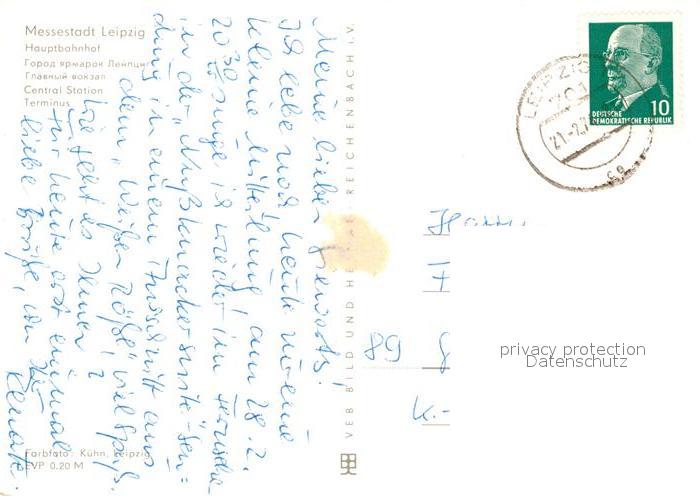 Messestadt Leipzig
Hauptbahnhof
Город ярмарок Лейпциг
Главный вокзал
Central Station
Terminus
Meine lieben
Ich lebe noch heute nur eine
kleine Mitteilung am 28.2.
20.30 singe ich wieder im
in der „Nußknackersuite"-Sen=
dung in einem Ausschnitt aus
dem „Weißen Rößl" viel Spaß.
Wie geht es Ihnen?
Für heute erst einmal
liebe Grüße, Ihre
Renate.
Farbfoto: Kühn, Leipzig
EVP 0.20 M
VEB BILD UND HEIMAT REICHENBACH i.V.
LEIPZIG
701
DEUTSCHE
DEMOKRATISCHE REPUBLIK
10
89
K.-
privacy protection
Datenschutz